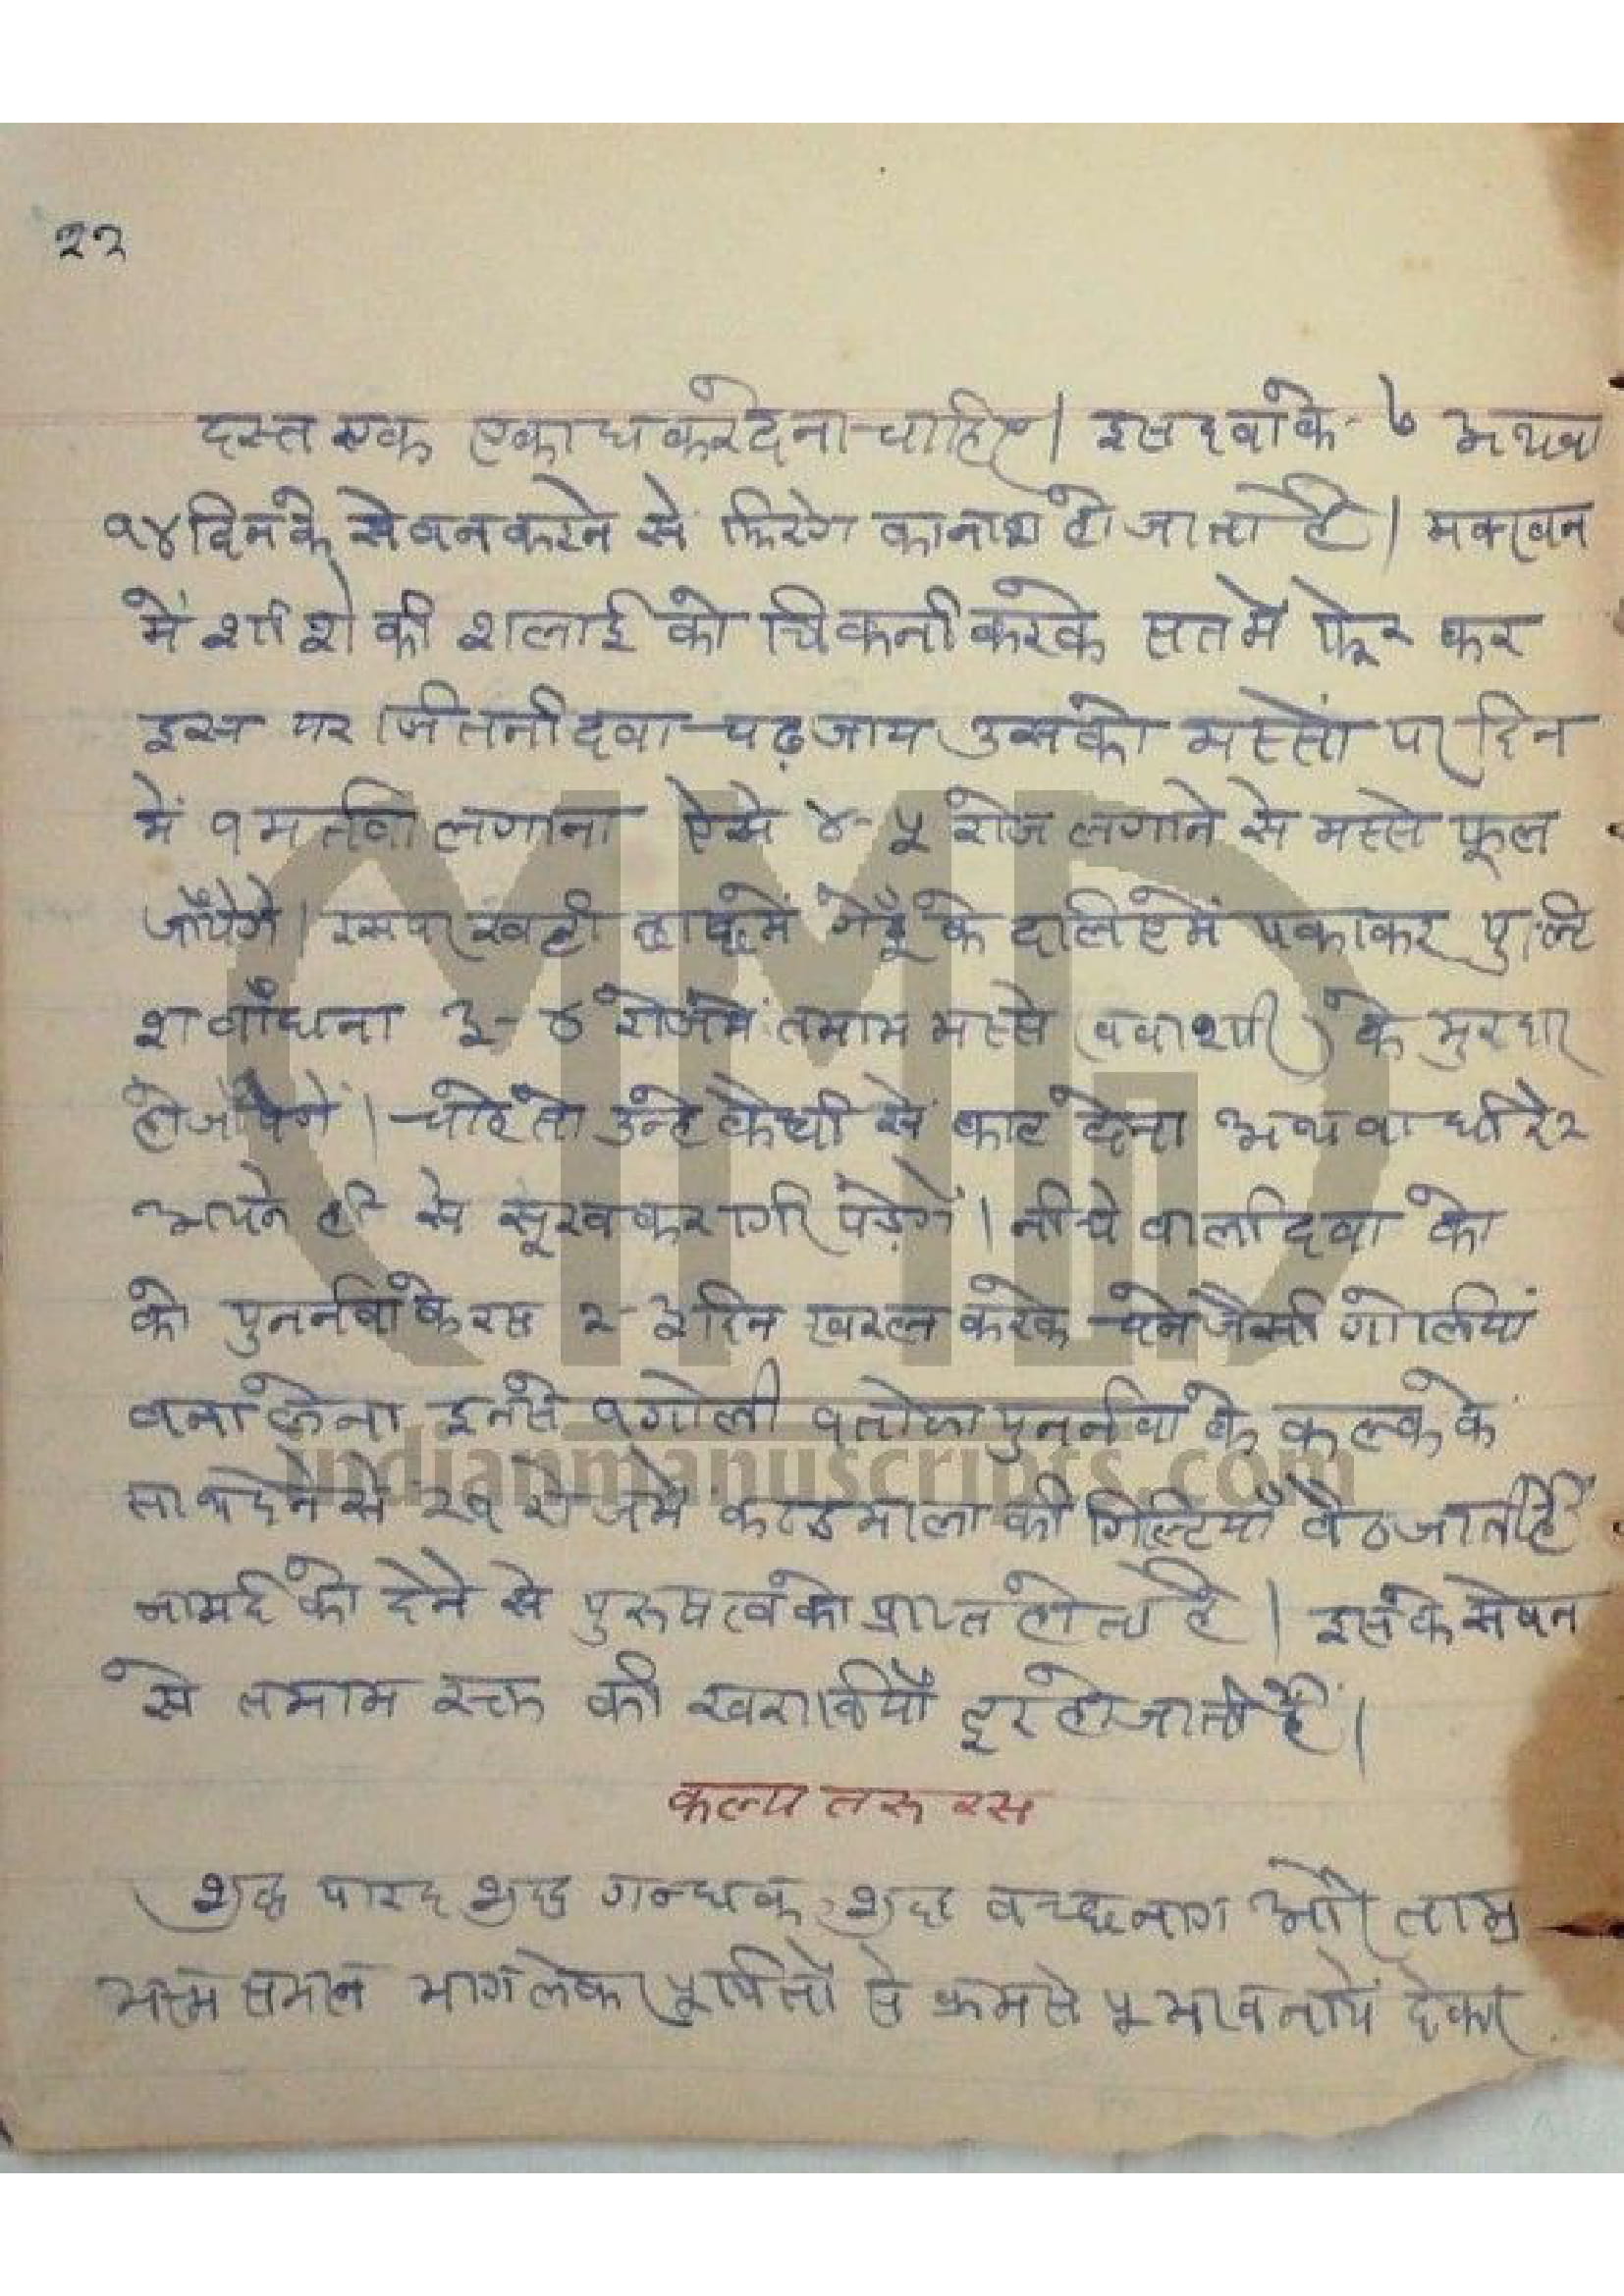 २२
दस्त एक एकाध करा देना चाहिए। इस दवा के ७ अथवा
१४ दिन के सेवन करने से फिरंग का नाश हो जाता है। मक्खन
में शीशे की शलाई को चिकनी करके सतमें फेर कर
इस पर जितनी दवा चढ़ जाय उसको मस्सों पर दिन
में १ मर्तवा लगाना ऐसे ४-५ रोज लगाने से मस्से फूल
जाँयेगे। इसपर खट्टी छाछ में गेहूँ के दलिए में पकाकर पुल्टि
श वाँधना ३-४ रोजमें तमाम मस्से (ववाशीर) के मुरदार
हो जाँयेगें। चाहे तो उन्हे कैंची से काट देना अथवा धीरे२
अपने ही से सूखकर गिर पड़ेगें। नीचे वाली दवा को
को पुनर्नवा के रस २-३ दिन खरल करके चने जैसी गोलियां
वना लेना इनसे १ गोली पुनर्नवा के कल्क के
साथ देने से २१ रोजमें कण्ठमाला की गिल्टियाँ वैठ जाती हैं
नामर्द को देने से पुरुषत्व को प्राप्त होता है। इसके सेवन
से तमाम रक्त की खरावियाँ दूर हो जाती हैं।
कल्प तरु रस
शुद्ध पारद शुद्ध गन्धक, शुद्ध वच्छनाग और ताम्र
भस्म समान भाग लेकर ५ पित्तों से क्रमसे ५ भावनायें देकर
MMDN
indianmanuscripts.com